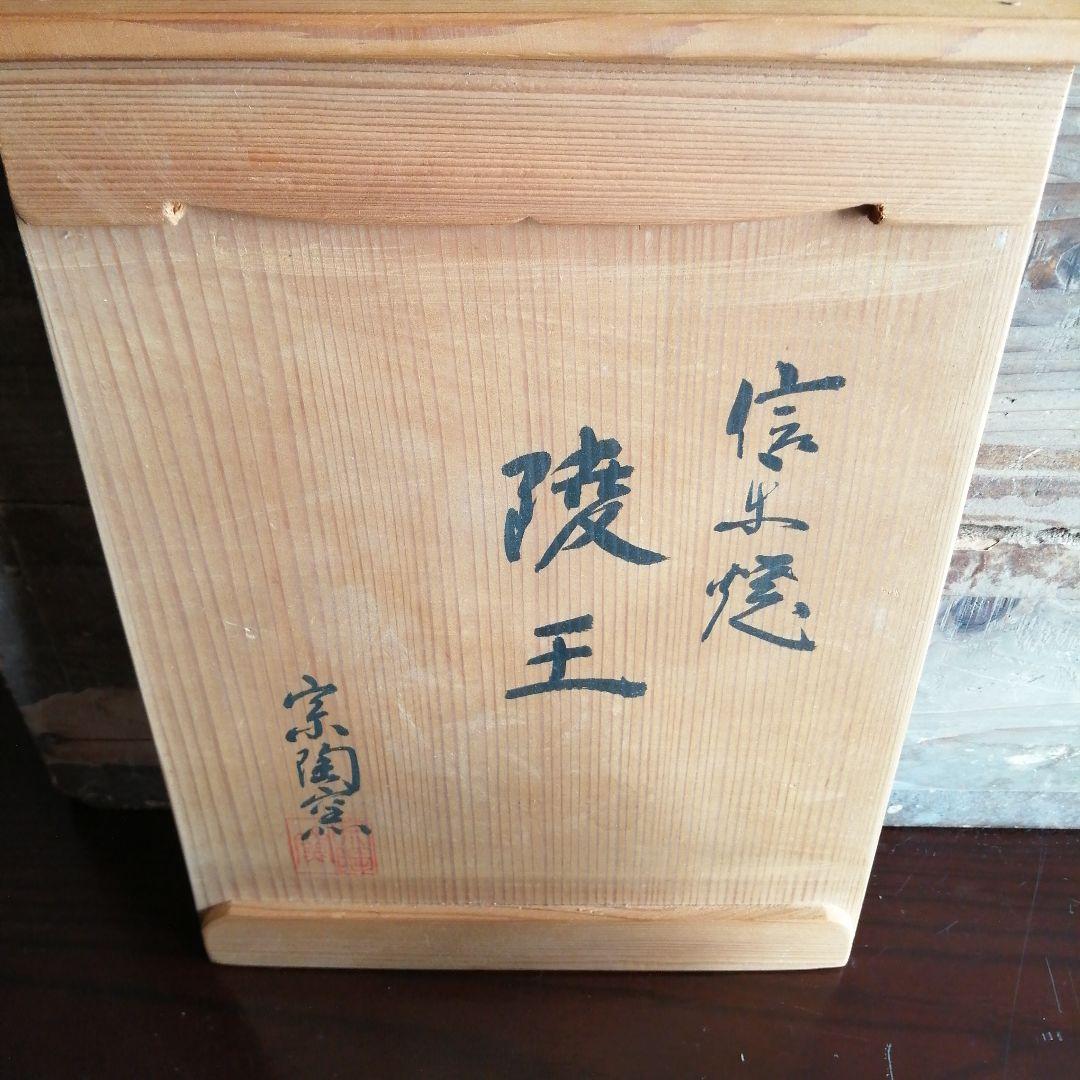 信楽焼
陵王
宗陶窯